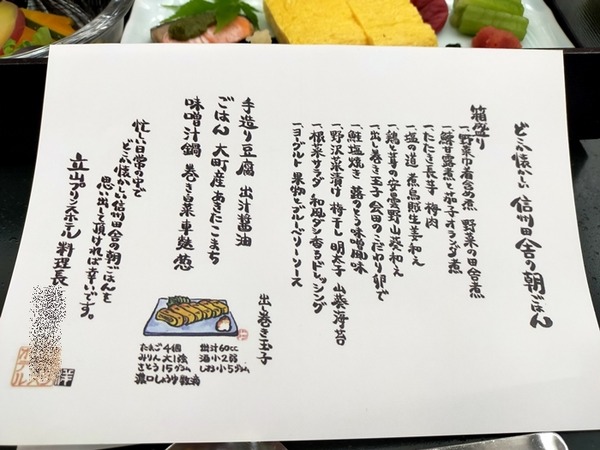 どこか懐かしい 信州田舎の朝ごはん
箱盛り
一野菜巾着含め煮 野菜の田舎煮
一鰊甘露煮と茄子オランダ煮
一たたき長芋 梅肉
一塩の道 煮烏賊生姜和え
一鶏と茸の安曇野山葵和え
一出し巻き玉子 会田のこだわり卵で
一鮭塩焼き 蕗のとう味噌風味
一野沢菜漬け 梅干し 明太子 山葵海苔
一根菜サラダ 和風だし香るドレッシング
一ヨーグルト 果物とブルーベリーソース
手造り豆腐 出汁醤油
ごはん 大町産あきたこまち
味噌汁鍋 巻き白菜 車麩 葱
忙しい日常の中で
どこか懐かしい信州田舎の朝ごはんを
思い出して頂ければ幸いです。
立山プリンスホテル 料理長
出し巻き玉子
たまご4個 出汁60cc
みりん大1強 酒小2弱
さとう15グラム しお小5グラム
濃口しょうゆ数滴